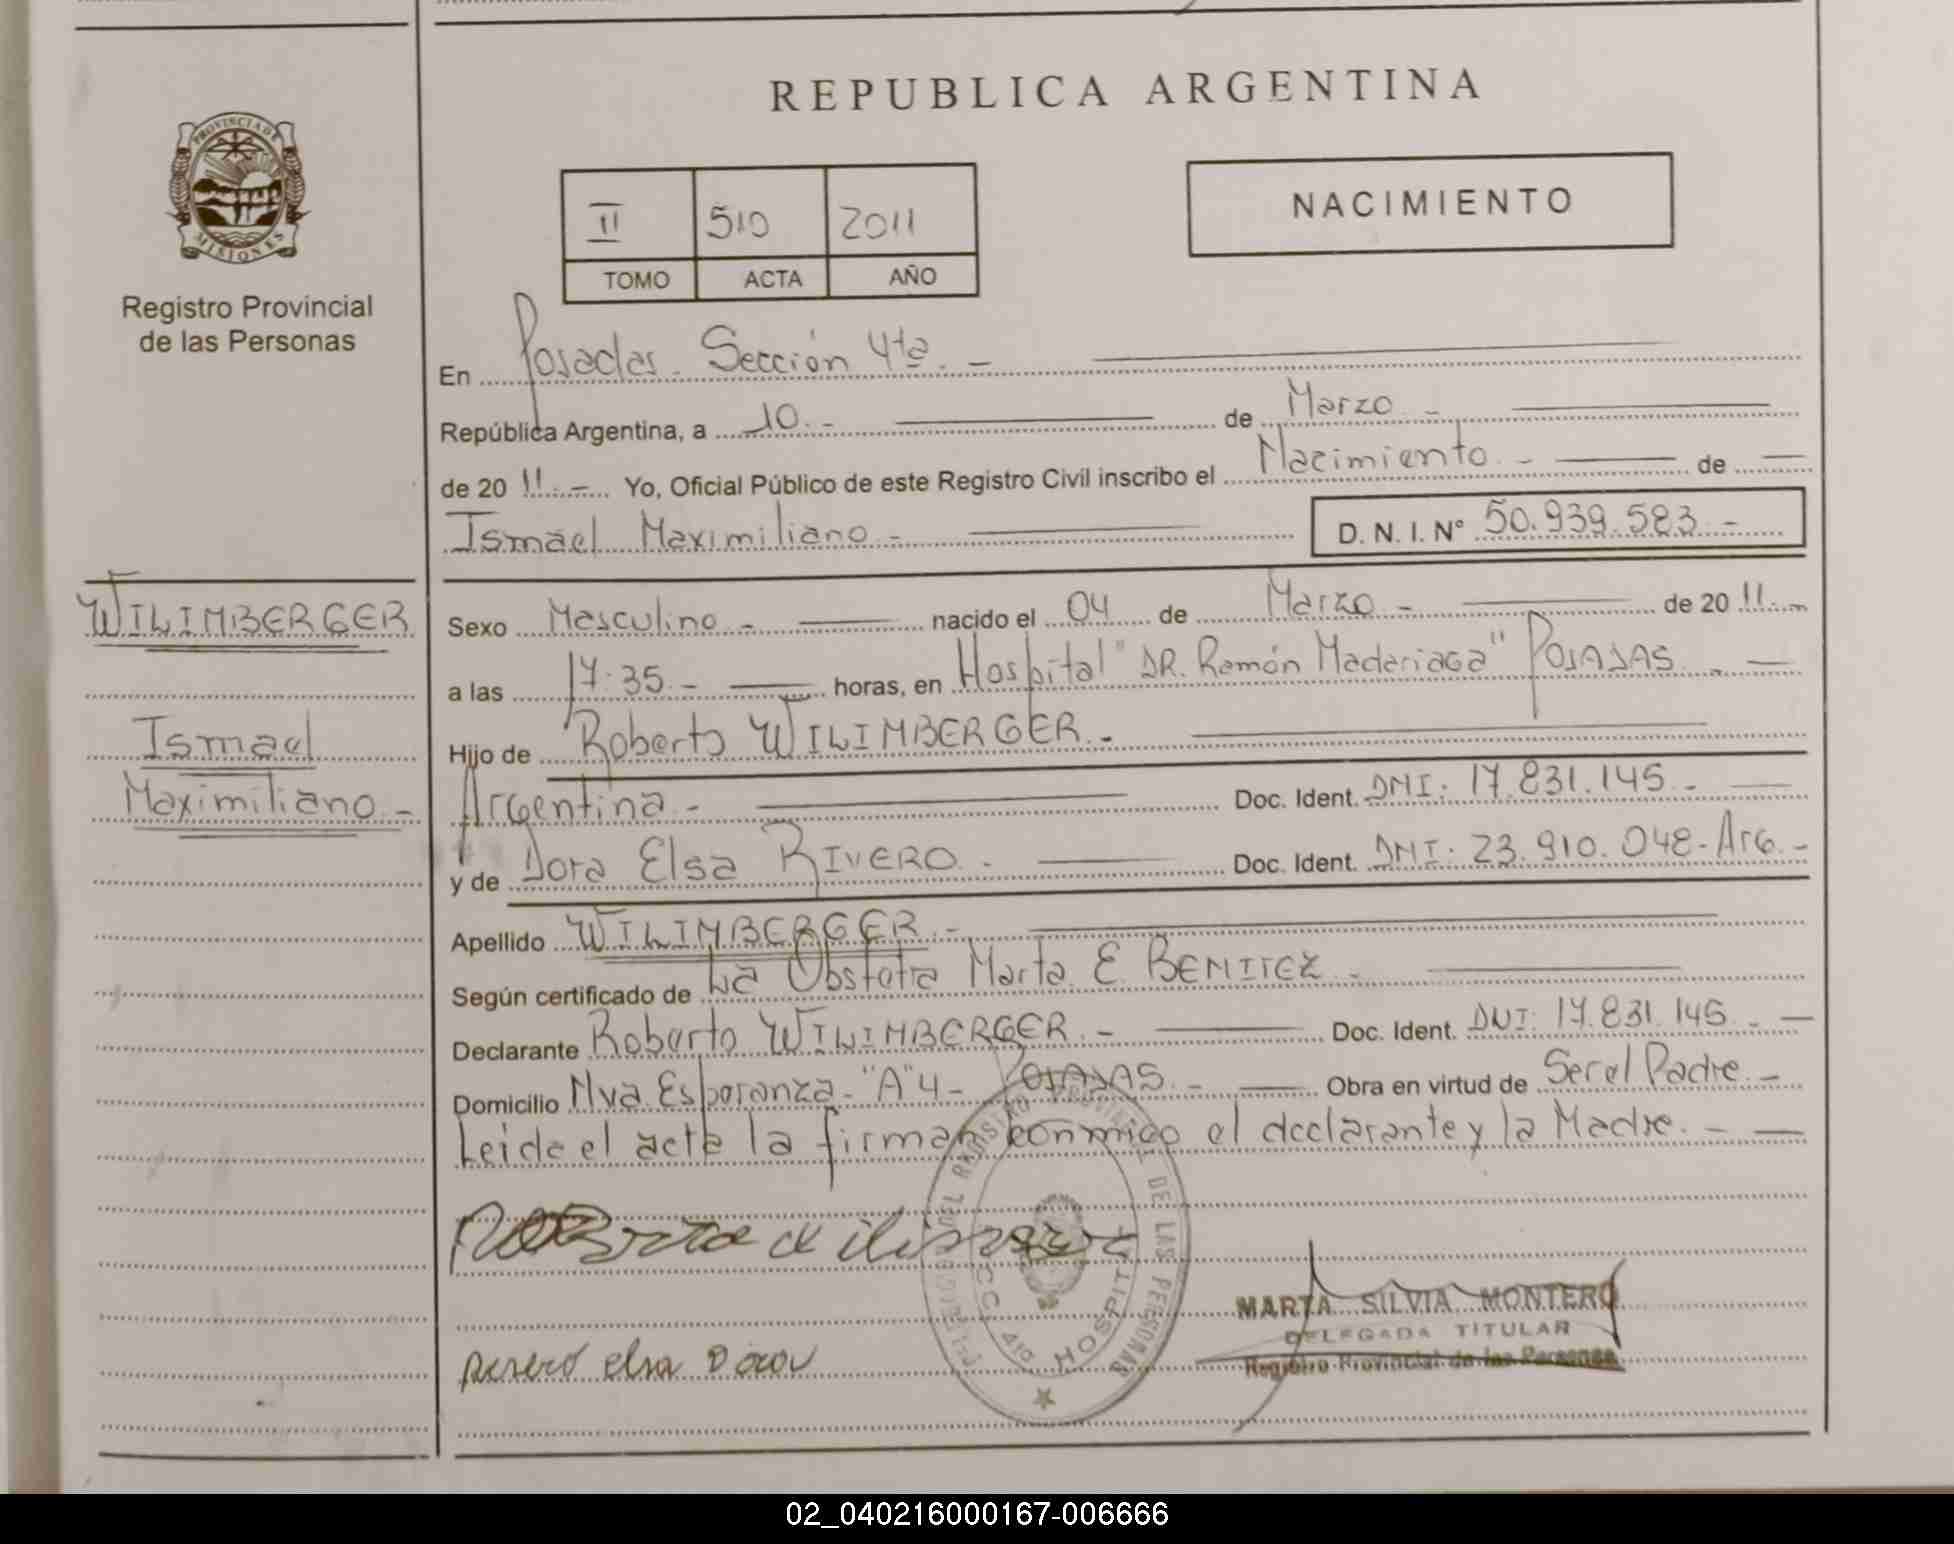 PROVINCIA DE
MISIONES
Registro Provincial
de las Personas
WILIMBERGER
Ismael
Maximiliano.-
REPUBLICA ARGENTINA
II 510 2011
TOMO ACTA AÑO
NACIMIENTO
En Posadas. Sección 4ta.-
República Argentina, a 10.- de Marzo.-
de 20 11.- Yo, Oficial Público de este Registro Civil inscribo el Nacimiento.- de
Ismael Maximiliano.- D. N. I. N° 50.939.583.-
Sexo Masculino.- nacido el 04 de Marzo.- de 20 11.-
a las 17:35.- horas, en Hospital "DR. Ramón Madariaga" POSADAS.-
Hijo de Roberto WILIMBERGER.-
Argentina.- Doc. Ident. DNI: 17.831.145.-
y de Dora Elsa RIVERO.- Doc. Ident. DNI: 23.910.048-Arg.-
Apellido WILIMBERGER.-
Según certificado de La Obstetra Marta E. BENITEZ.-
Declarante Roberto WILIMBERGER.- Doc. Ident. DNI: 17.831.145.-
Domicilio Nva Esperanza-"A"4- POSADAS.- Obra en virtud de Ser el Padre.-
Leida el acta la firman conmigo el declarante y la Madre.-
Rivero elsa Dora
DEL REGISTRO PROVINCIAL DE LAS PERSONAS
SECC 4ta HOSPITAL
MARTA SILVIA MONTERO
DELEGADA TITULAR
Registro Provincial de las Personas
02_040216000167-006666